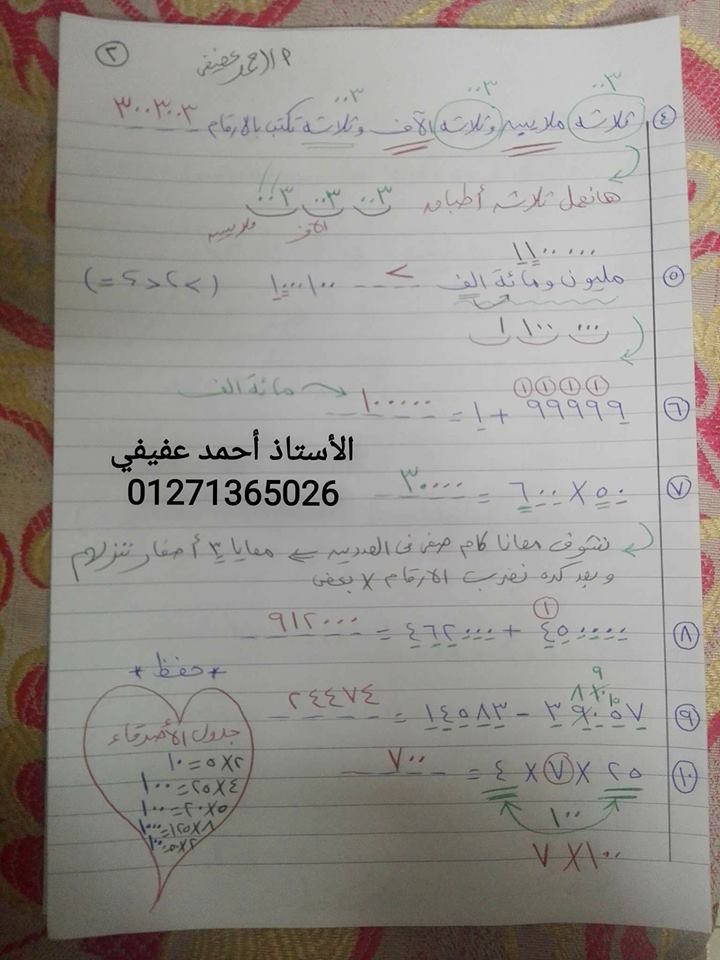 ٢
م/ احمد عفيفى
٠٠٣ ٠٠٣ ٠٠٣
٤ ثلاثة ملايين وثلاثة الآف وثلاثة تكتب بالارقام ٣٠٠٣٠٠٣
هانعمل ثلاثة أطباق ٠٠٣ ٠٠٣ ٠٠٣
الآف ملايين
١١٠٠٠٠٠
٥ مليون ومائة الف > ١٠٠٠١٠٠ (> ، < ، =)
١ ١٠٠ ٠٠٠
١ ١ ١ ١
٦ ٩٩٩٩٩ + ١ = ١٠٠٠٠٠ مائة الف
الأستاذ أحمد عفيفي
01271365026
٧ ٥٠ × ٦٠٠ = ٣٠٠٠٠
نشوف معانا كام صفر فى العددين ⇐ معايا ٣ أصفار تنزلهم
وبعد كده نضرب الارقام × بعض
١
٨ ٤٥٠٠٠٠ + ٤٦٢٠٠٠ = ٩١٢٠٠٠
٩ ٣٩٠٥٧ − ١٤٥٨٣ =
١٠ ٢٥ × ٧ × ٤ = ٧٠٠
١٠٠
١٠٠ × ٧
* حفظ *
جدول الأصدقاء
٢×٥=١٠
٤×٢٥=١٠٠
٥×٢٠=١٠٠
٨×١٢٥=١٠٠٠